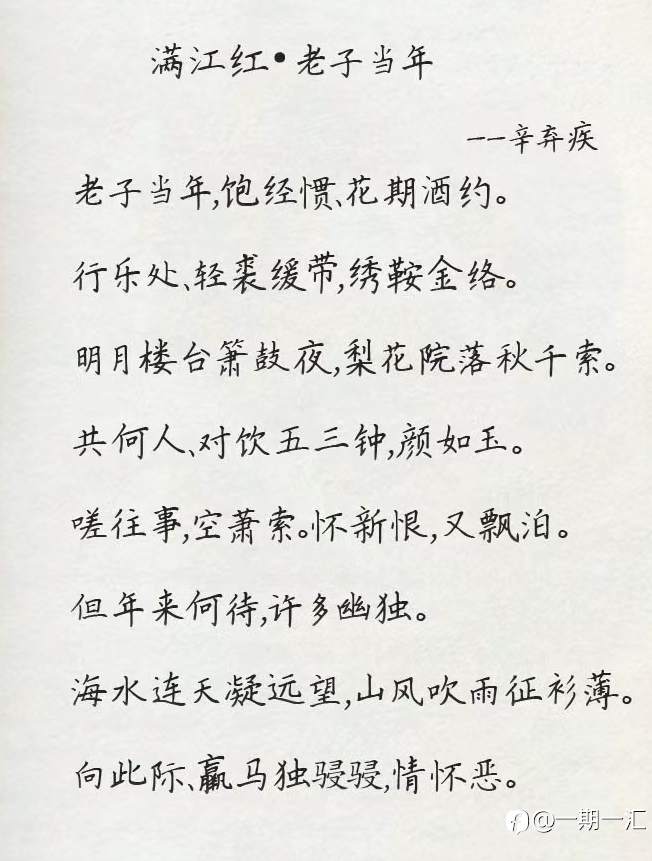 满江红•老子当年
——辛弃疾
老子当年,饱经惯、花期酒约。
行乐处、轻裘缓带,绣鞍金络。
明月楼台箫鼓夜,梨花院落秋千索。
共何人、对饮五三钟,颜如玉。
嗟往事,空萧索。怀新恨,又飘泊。
但年来何待,许多幽独。
海水连天凝远望,山风吹雨征衫薄。
向此际、羸马独骎骎,情怀恶。
@一期一汇